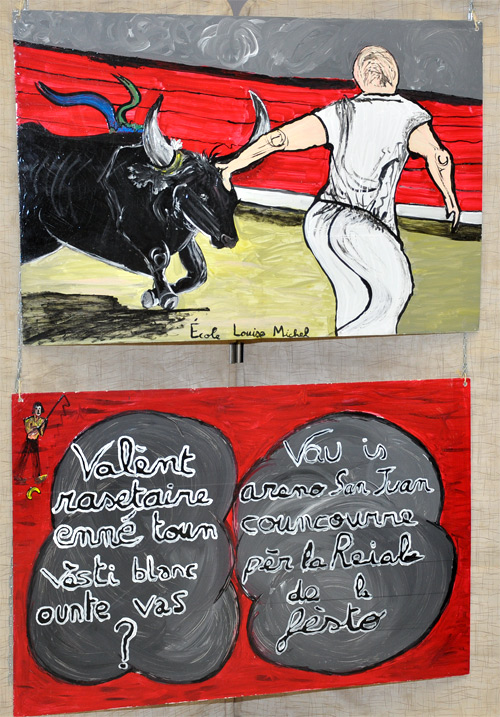 École Louise Michel
Valènt
rasetaire
enné toun
vèsti blanc
ounte vas
?
Vau is
areno San Juan
councourre
pèr la Reialo
de la
fèsto